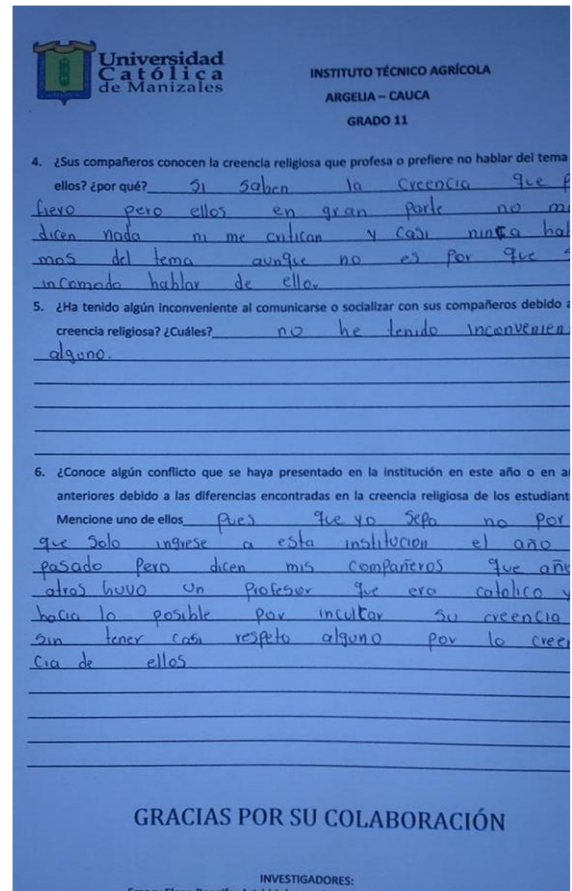 Universidad
Católica
de Manizales
INSTITUTO TÉCNICO AGRÍCOLA
ARGELIA – CAUCA
GRADO 11
4. ¿Sus compañeros conocen la creencia religiosa que profesa o prefiere no hablar del tema
ellos? ¿por qué? Si saben la creencia que p
llevo pero ellos en gran parte no m
dicen nada ni me critican y casi ninca hab
mos del tema aunque no es por que s
incomodo hablar de ello.
5. ¿Ha tenido algún inconveniente al comunicarse o socializar con sus compañeros debido a
creencia religiosa? ¿Cuáles? no he tenido inconvenien
alguno.
6. ¿Conoce algún conflicto que se haya presentado en la institución en este año o en a
anteriores debido a las diferencias encontradas en la creencia religiosa de los estudiant
Mencione uno de ellos Pues que yo sepa no por
que solo ingrese a esta institucion el año
pasado pero dicen mis compañeros que año
atros huvo un profesor que era catolico y
hacia lo posible por incultar su creencia
sin tener casi respeto alguno por lo creen
cia de ellos
GRACIAS POR SU COLABORACIÓN
INVESTIGADORES: